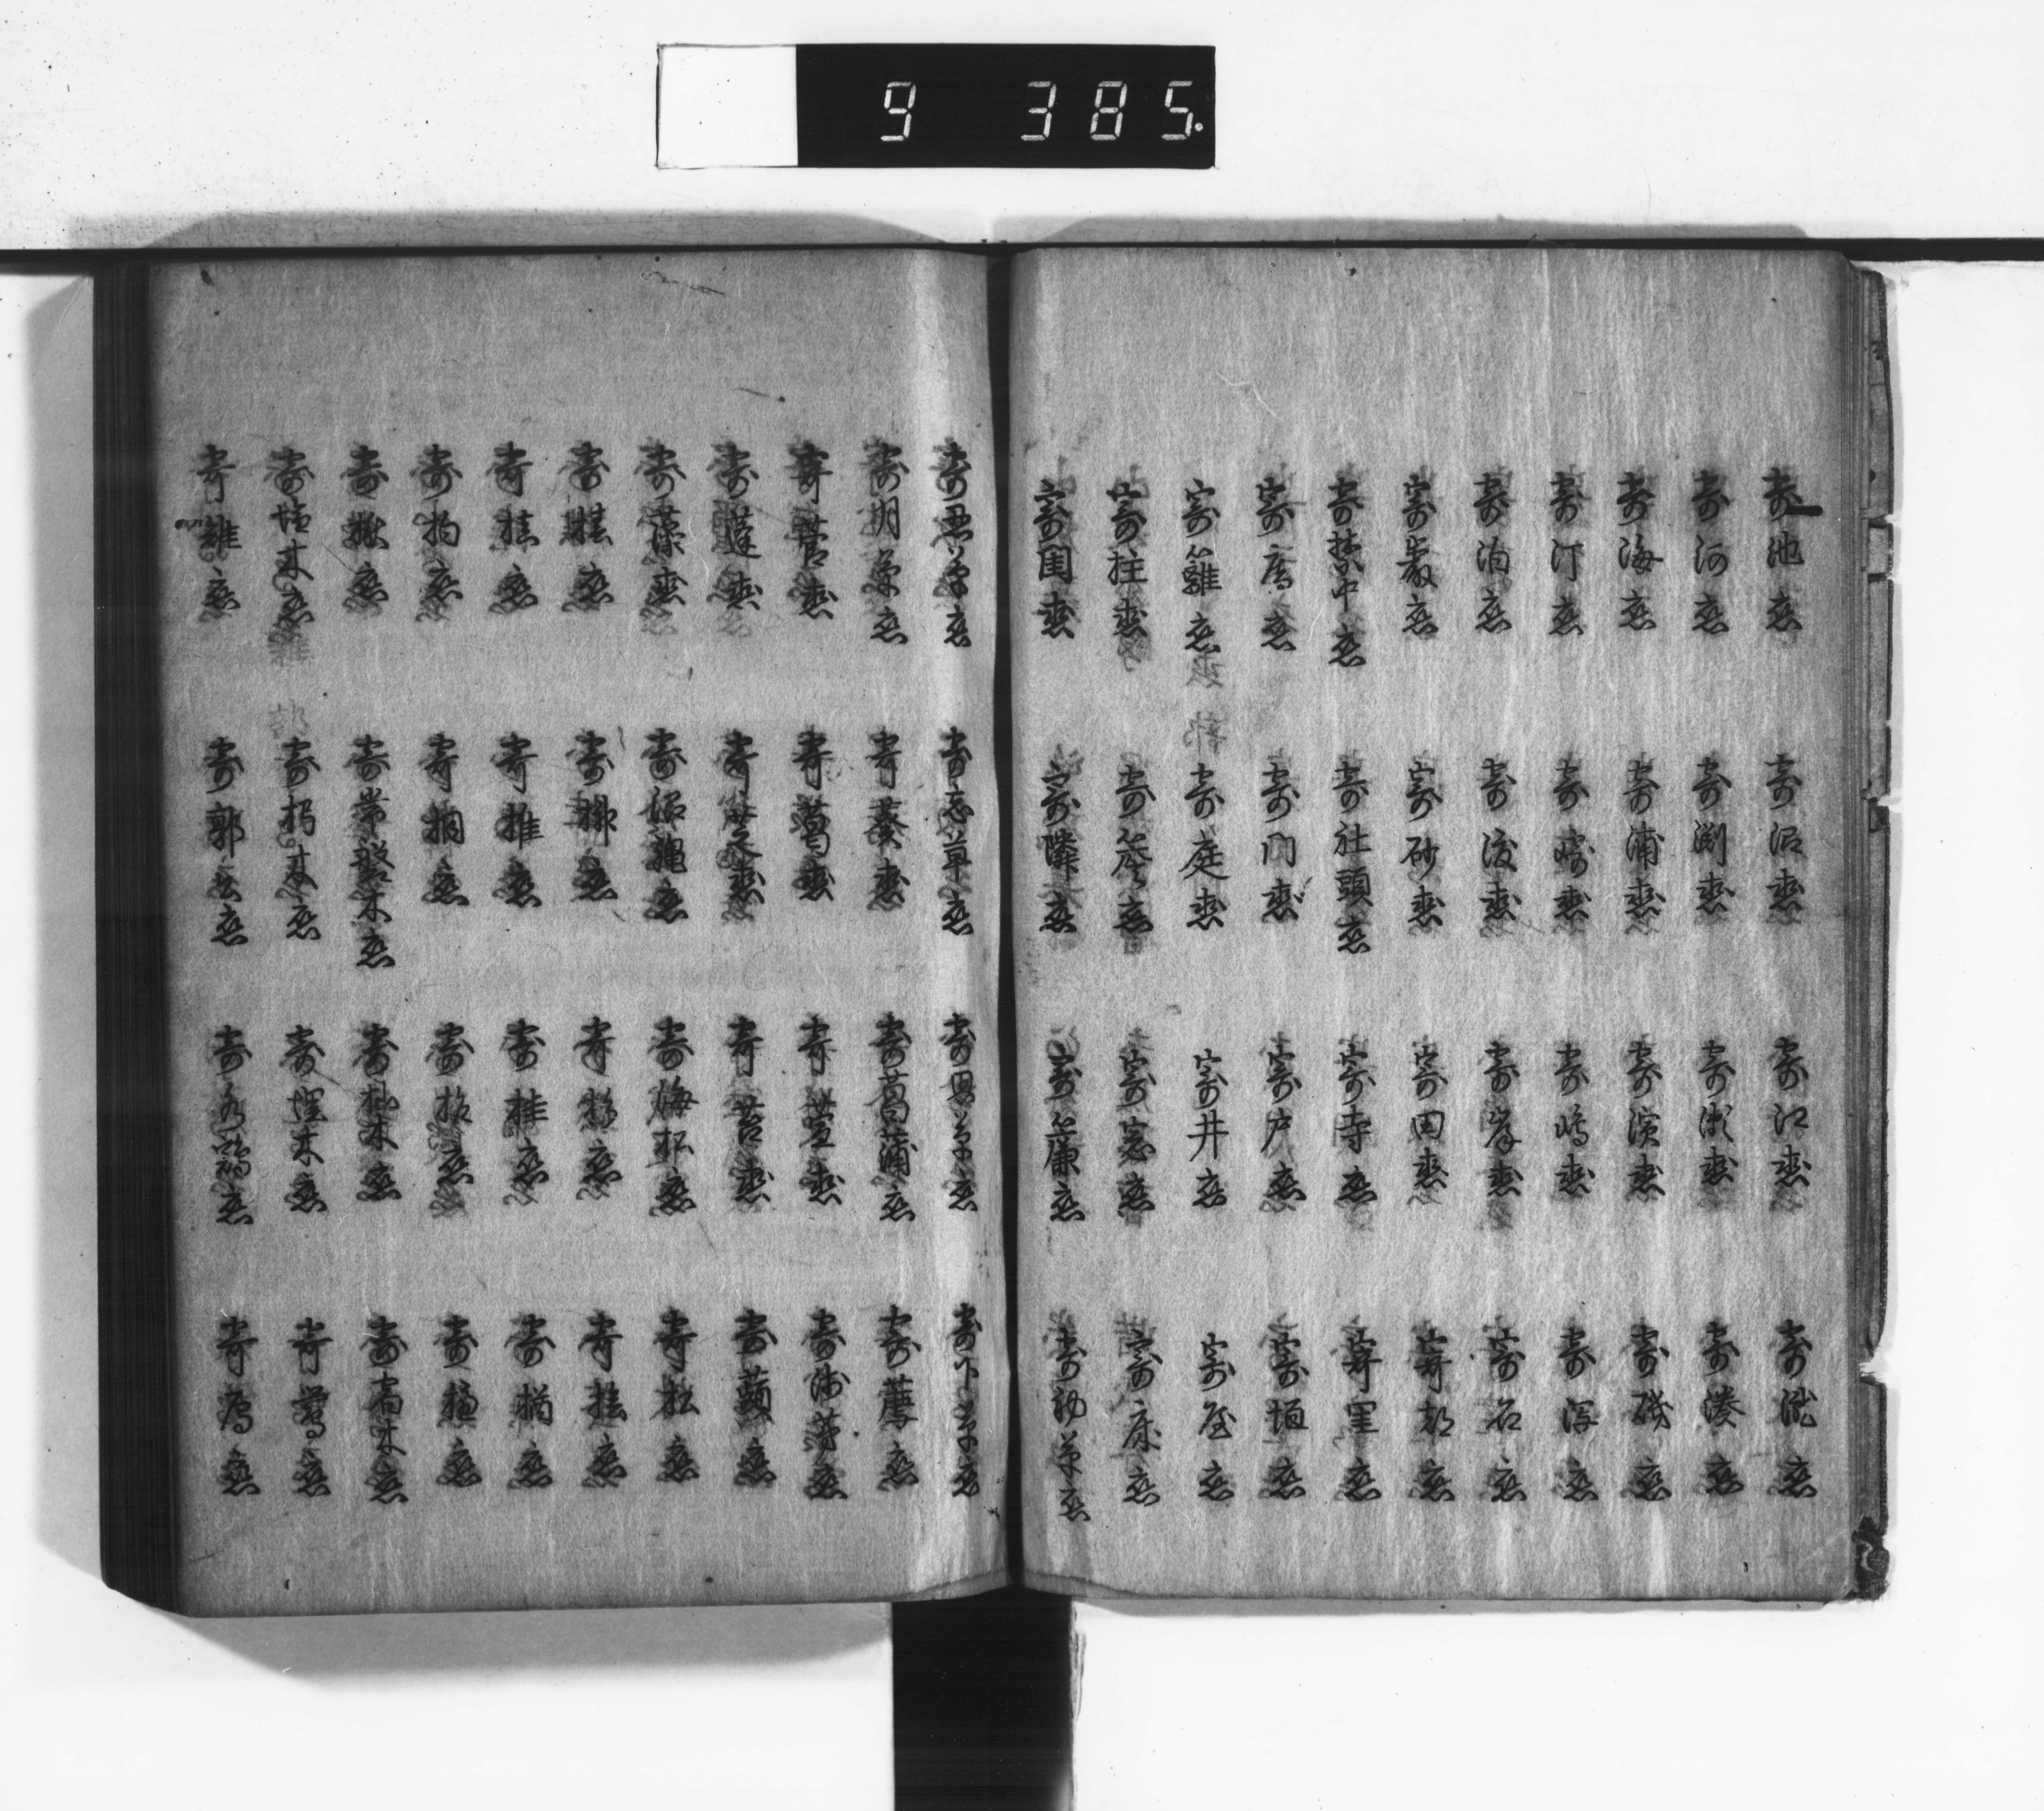 寄池恋 寄沼恋 寄江恋 寄滝恋
寄河恋 寄渕恋 寄瀬恋 寄湊恋
寄海恋 寄浦恋 寄濱恋 寄磯恋
寄汀恋 寄崎恋 寄嶋恋 寄泻恋
寄泊恋 寄渡恋 寄岸恋 寄石恋
寄巌恋 寄砂恋 寄田恋 寄都恋
寄禁中恋 寄社頭恋 寄寺恋 寄里恋
寄庵恋 寄門恋 寄戸恋 寄垣恋
寄籬恋 寄庭恋 寄井恋 寄屋恋
寄柱恋 寄簷恋 寄窓恋 寄床恋
寄閨恋 寄隣恋 寄簾恋 寄初草恋
寄思草恋 寄忘草恋 寄忍草恋 寄下草恋
寄草恋 寄葵恋 寄菖蒲恋 寄薦恋
寄菅恋 寄葛恋 寄萱恋 寄浅茅恋
寄蓬恋 寄芝恋 寄苔恋 寄蘋恋
寄藻恋 寄沼縄恋 寄海松恋 寄松恋
寄恋 寄榊恋 寄杉恋 寄恋
寄恋 寄椎恋 寄恋 寄楢恋
寄柏恋 寄桐恋 寄恋 寄恋
寄楸恋 寄常盤木恋 寄杣木恋 寄宿木恋
寄塩木恋 寄朽木恋 寄埋木恋 寄鶯恋
寄雉恋 寄郭公恋 寄水鶏恋 寄恋
9 385